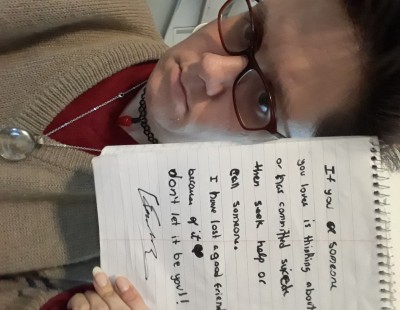 If you or someone
you loves is thinking about
or has committed suicide
then seek help or
call someone.
I have lost a good friend
because of it
don't let it be you!!